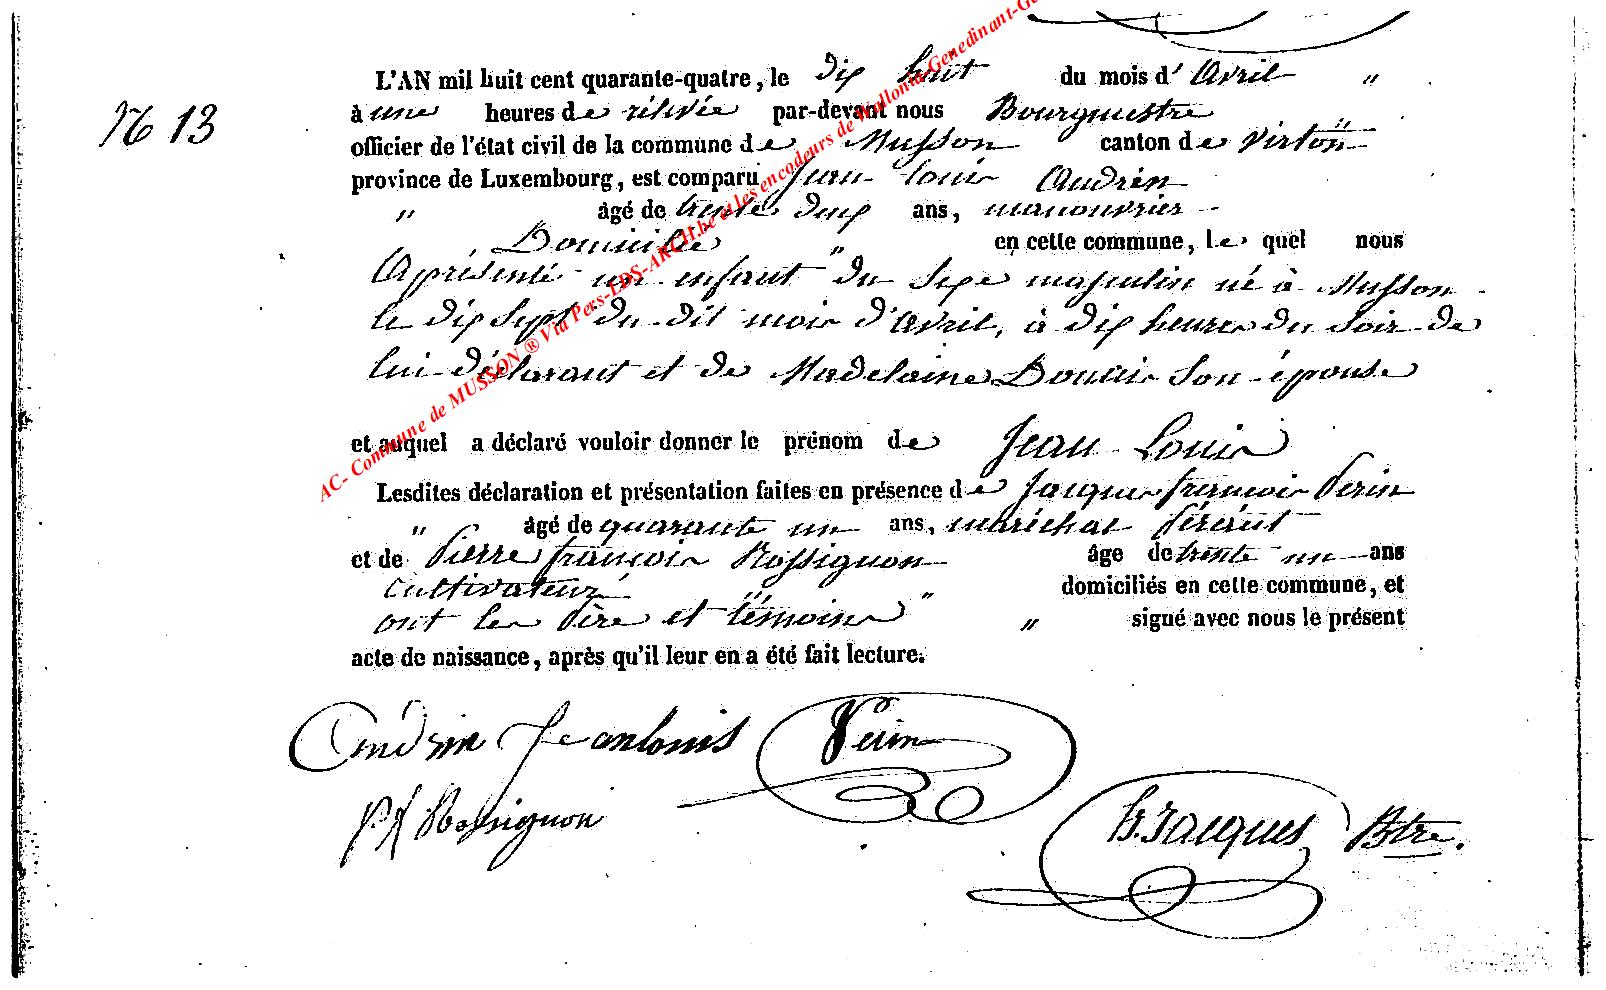 N 13
L'AN mil huit cent quarante-quatre, le dix huit du mois d'Avril "
à une heures de rélévée par-devant nous Bourgmestre
officier de l'état civil de la commune de Musson canton de Virton "
province de Luxembourg, est comparu Jean Louis Audrin
" âgé de trente deux ans, manouvrier
Domicilé " en cette commune, lequel nous
A présenté un enfant du sexe masculin né à Musson
le dix sept du dit mois d'avril, à dix heures du soir de
lui déclarant et de Madelaine son épouse
et auquel a déclaré vouloir donner le prénom de Jean Louis
Lesdites déclaration et présentation faites en présence de Jacques françois Perin
" âgé de quarante un ans, maréchal férant
et de Pierre françois Rossignon âge de trente un ans
cultivateur domiciliés en cette commune, et
ont les Père et témoins " " signé avec nous le présent
acte de naissance, après qu'il leur en a été fait lecture.
Audrin Jeanlouis Perin
pf Rossignon
h. Jacques Btre.
AC- Commune de MUSSON ® Via Pers-EDS-ARCH.be et les encodeurs de Wallonia-Genedinant-Ge